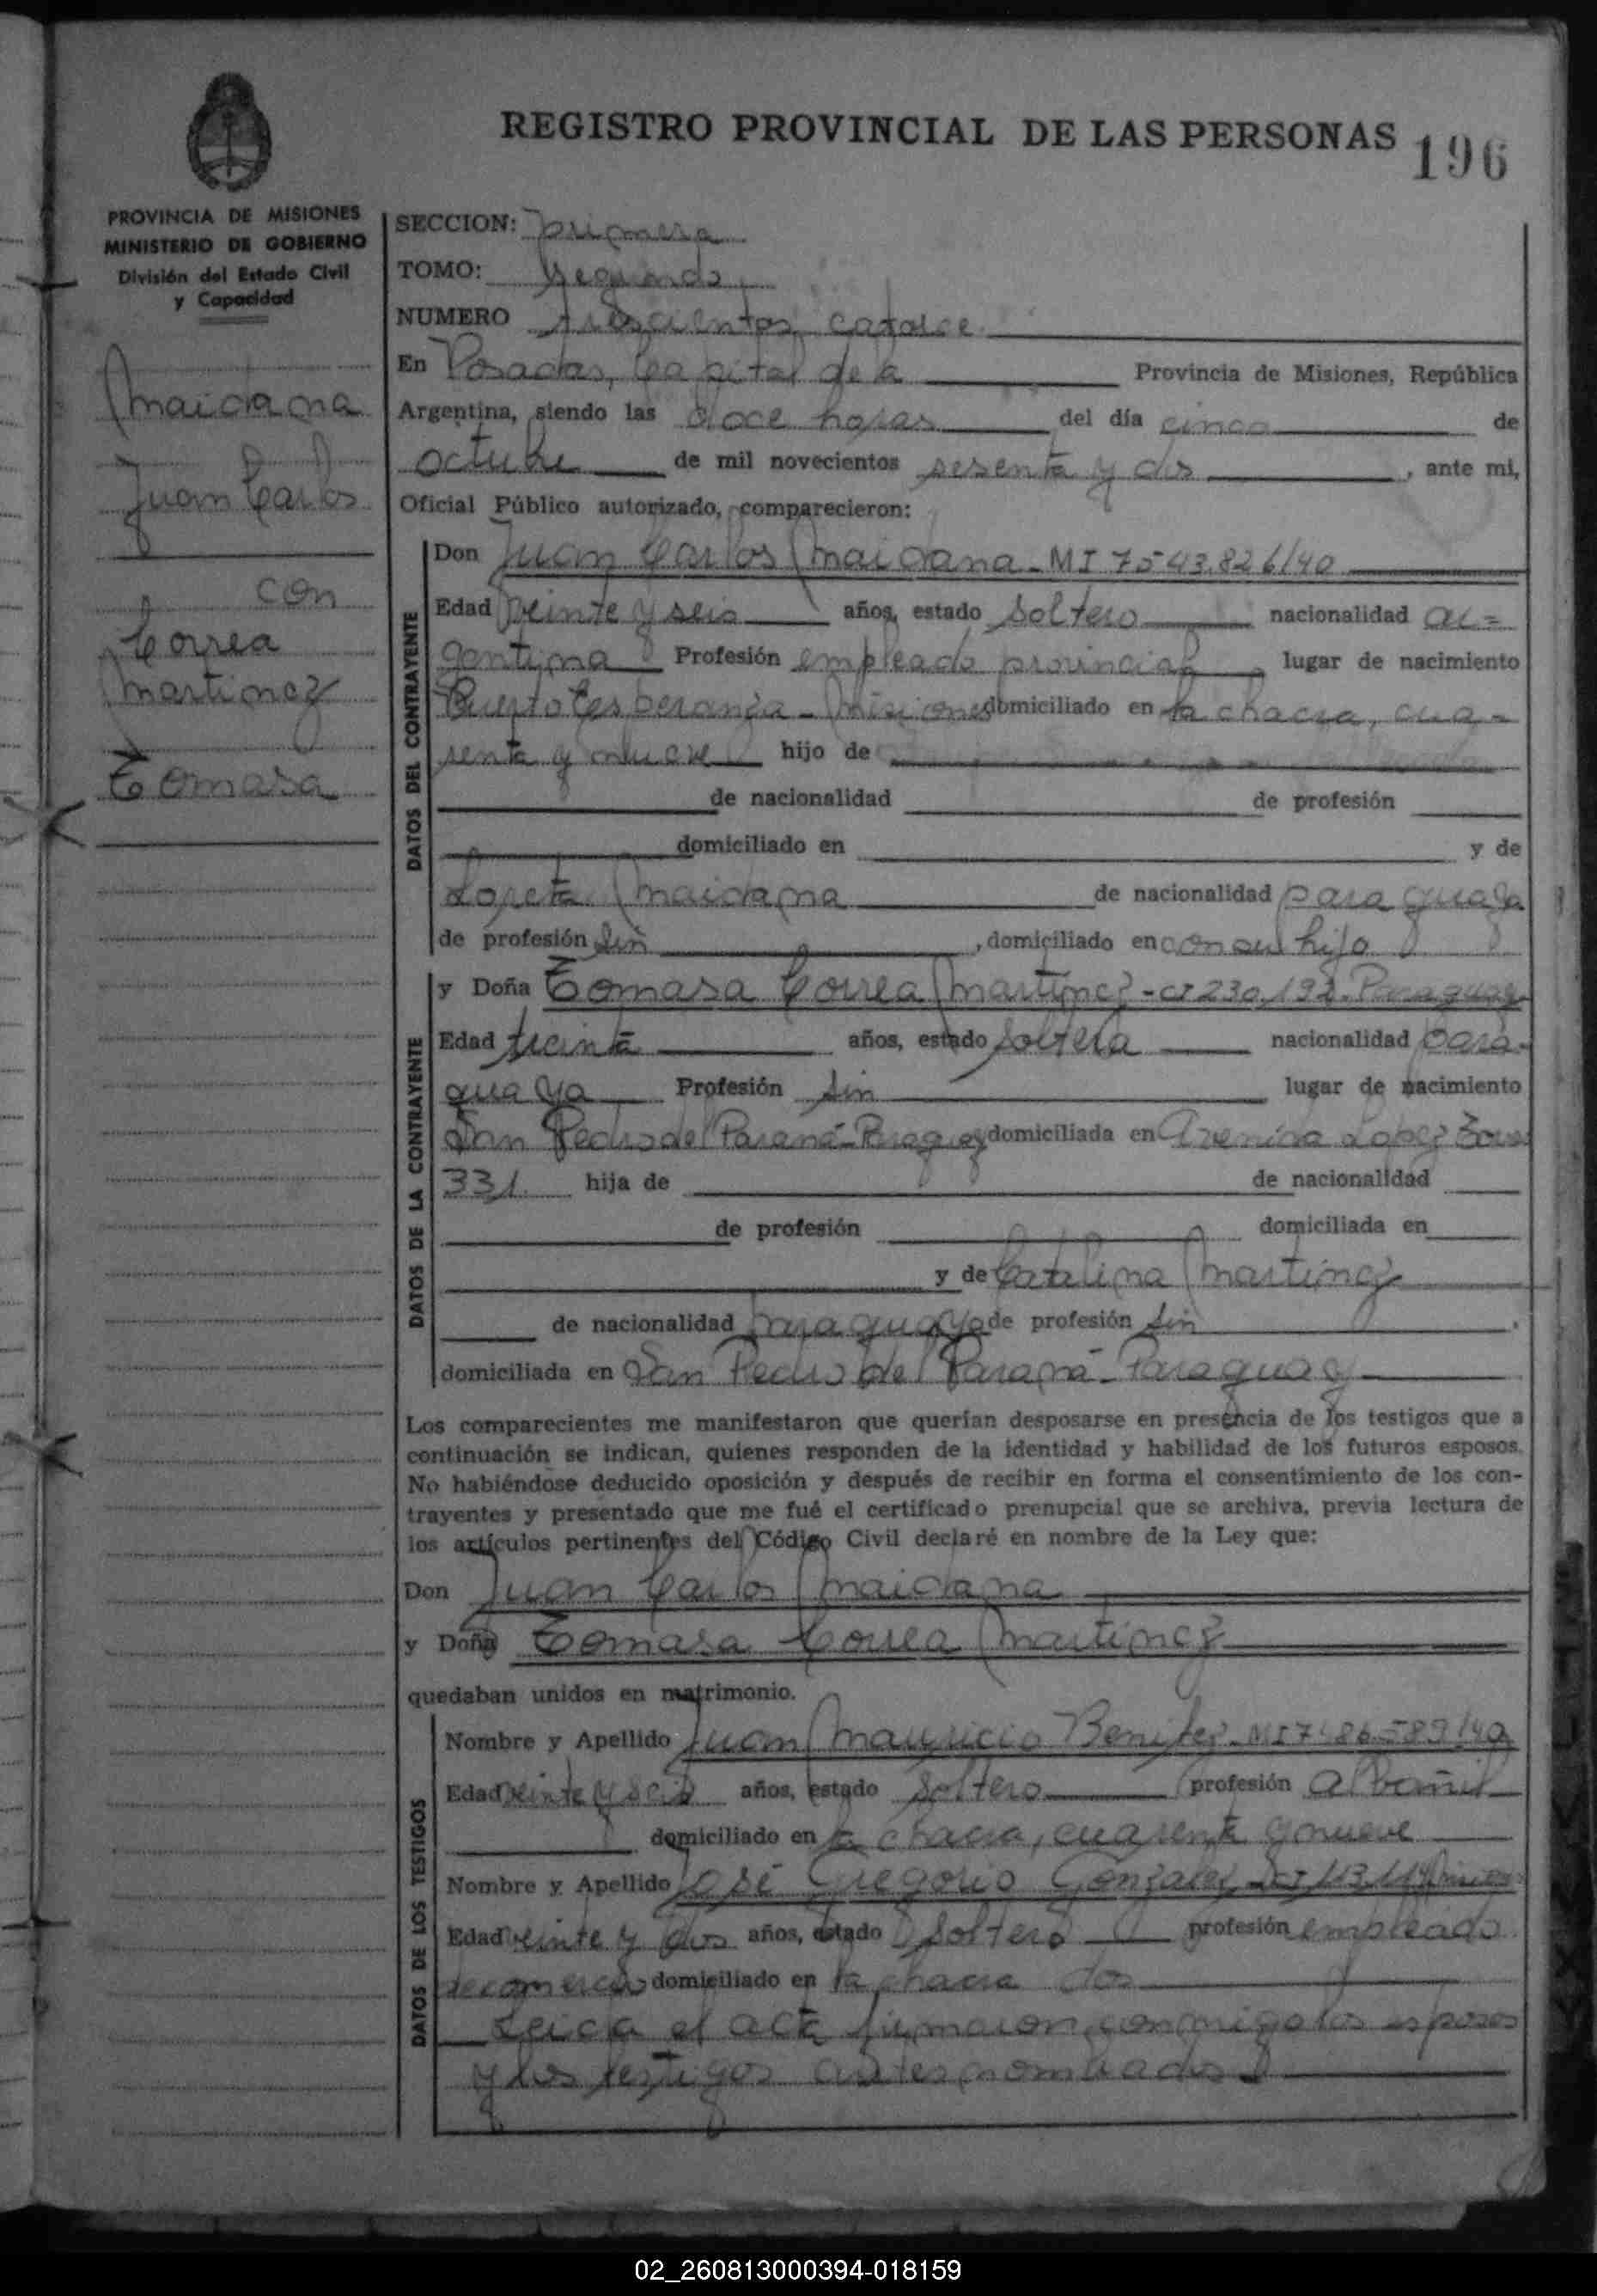 REGISTRO PROVINCIAL DE LAS PERSONAS 196
PROVINCIA DE MISIONES
MINISTERIO DE GOBIERNO
División del Estado Civil
y Capacidad
Maidana
Juan Carlos
con
Correa
Martinez
Tomasa
SECCION: primera
TOMO: segundo
NUMERO trescientos catorce
En Posadas, Capital de la Provincia de Misiones, República
Argentina, siendo las doce horas del día cinco de
octubre de mil novecientos sesenta y dos, ante mi,
Oficial Público autorizado, comparecieron:
DATOS DEL CONTRAYENTE
Don Juan Carlos Maidana - MI 7543.826/40
Edad veinte y seis años, estado soltero nacionalidad ar=
gentina Profesión empleado provincial lugar de nacimiento
Puerto Esperanza - Misiones domiciliado en la chacra, cua-
renta y nueve hijo de
de nacionalidad de profesión
domiciliado en y de
Loreta Maidana de nacionalidad paraguaya
de profesión sin, domiciliado en con su hijo
DATOS DE LA CONTRAYENTE
y Doña Tomasa Correa Martinez - CI 230.192. Paraguay
Edad treinta años, estado soltera nacionalidad para-
guaya Profesión sin lugar de nacimiento
San Pedro del Paraná - Paraguay domiciliada en Avenida Lopez
331 hija de de nacionalidad
de profesión domiciliada en
y de Catalina Martinez
de nacionalidad paraguaya de profesión sin.
domiciliada en San Pedro del Paraná - Paraguay
Los comparecientes me manifestaron que querían desposarse en presencia de los testigos que a
continuación se indican, quienes responden de la identidad y habilidad de los futuros esposos.
No habiéndose deducido oposición y después de recibir en forma el consentimiento de los con-
trayentes y presentado que me fué el certificado prenupcial que se archiva, previa lectura de
los artículos pertinentes del Código Civil declaré en nombre de la Ley que:
Don Juan Carlos Maidana
y Doña Tomasa Correa Martinez
quedaban unidos en matrimonio.
DATOS DE LOS TESTIGOS
Nombre y Apellido Juan Mauricio Benitez - MI
Edad veinte y seis años, estado soltero profesión albañil
domiciliado en la chacra, cuarenta y nueve
Nombre y Apellido José Gregorio Gonzalez
Edad veinte y dos años, estado soltero profesión empleado
de comercio domiciliado en la chacra dos
Leida el acta firmaron conmigo los esposos
y los testigos antes nombrados
02_260813000394-018159